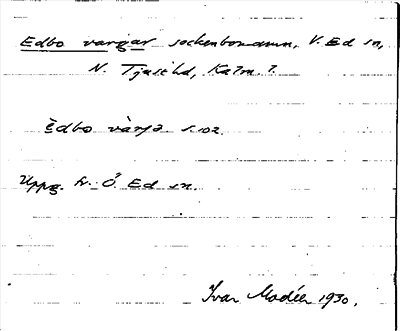 Edbo vargar sockenbornamn, V. Ed sn,
N. Tjust hd, Kalm. l.
Edbo vàrja s. 102.
Uppg. fr. Ö. Ed sn.
Ivar Modéer 1930.